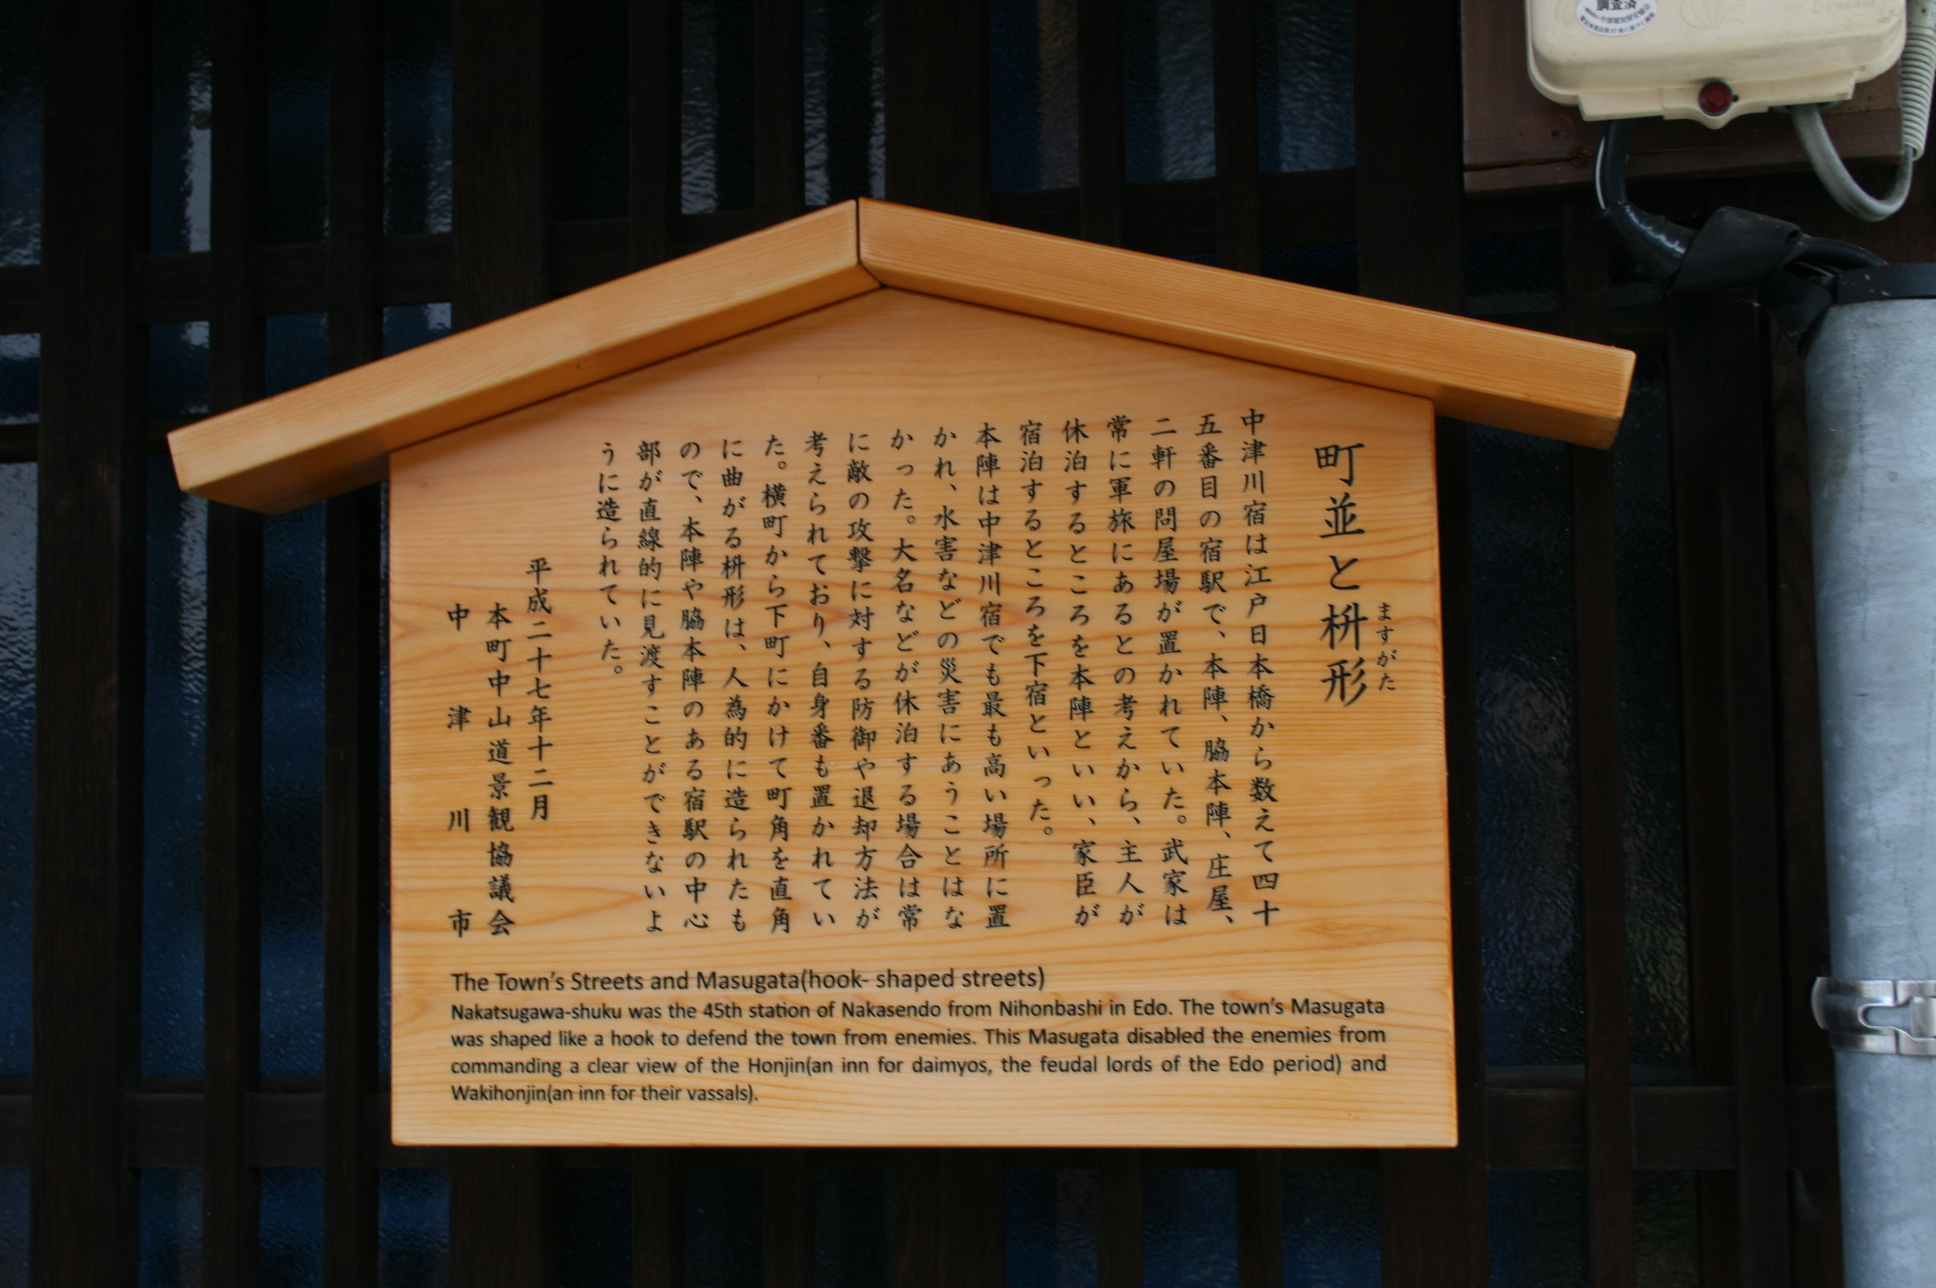 調査済
町並と枡形
ますがた
中津川宿は江戸日本橋から数えて四十
五番目の宿駅で、本陣、脇本陣、庄屋、
二軒の問屋場が置かれていた。武家は
常に軍旅にあるとの考えから、主人が
休泊するところを本陣といい、家臣が
宿泊するところを下宿といった。
本陣は中津川宿でも最も高い場所に置
かれ、水害などの災害にあうことはな
かった。大名などが休泊する場合は常
に敵の攻撃に対する防御や退却方法が
考えられており、自身番も置かれてい
た。横町から下町にかけて町角を直角
に曲がる枡形は、人為的に造られたも
ので、本陣や脇本陣のある宿駅の中心
部が直線的に見渡すことができないよ
うに造られていた。
平成二十七年十二月
本町中山道景観協議会
中津川市
The Town's Streets and Masugata(hook- shaped streets)
Nakatsugawa-shuku was the 45th station of Nakasendo from Nihonbashi in Edo. The town's Masugata
was shaped like a hook to defend the town from enemies. This Masugata disabled the enemies from
commanding a clear view of the Honjin(an inn for daimyos, the feudal lords of the Edo period) and
Wakihonjin(an inn for their vassals).